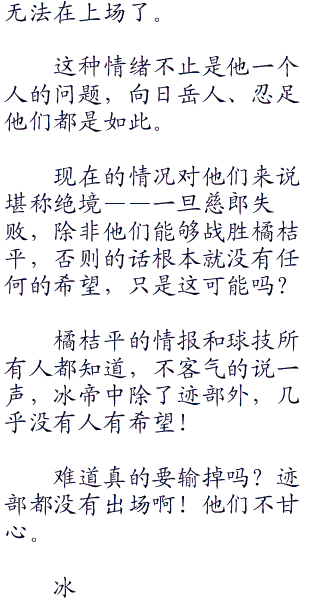 无法在上场了。
这种情绪不止是他一个
人的问题，向日岳人、忍足
他们都是如此。
现在的情况对他们来说
堪称绝境——一旦慈郎失
败，除非他们能够战胜橘桔
平，否则的话根本就没有任
何的希望，只是这可能吗？
橘桔平的情报和球技所
有人都知道，不客气的说一
声，冰帝中除了迹部外，几
乎没有人有希望！
难道真的要输掉吗？迹
部都没有出场啊！他们不甘
心。
冰